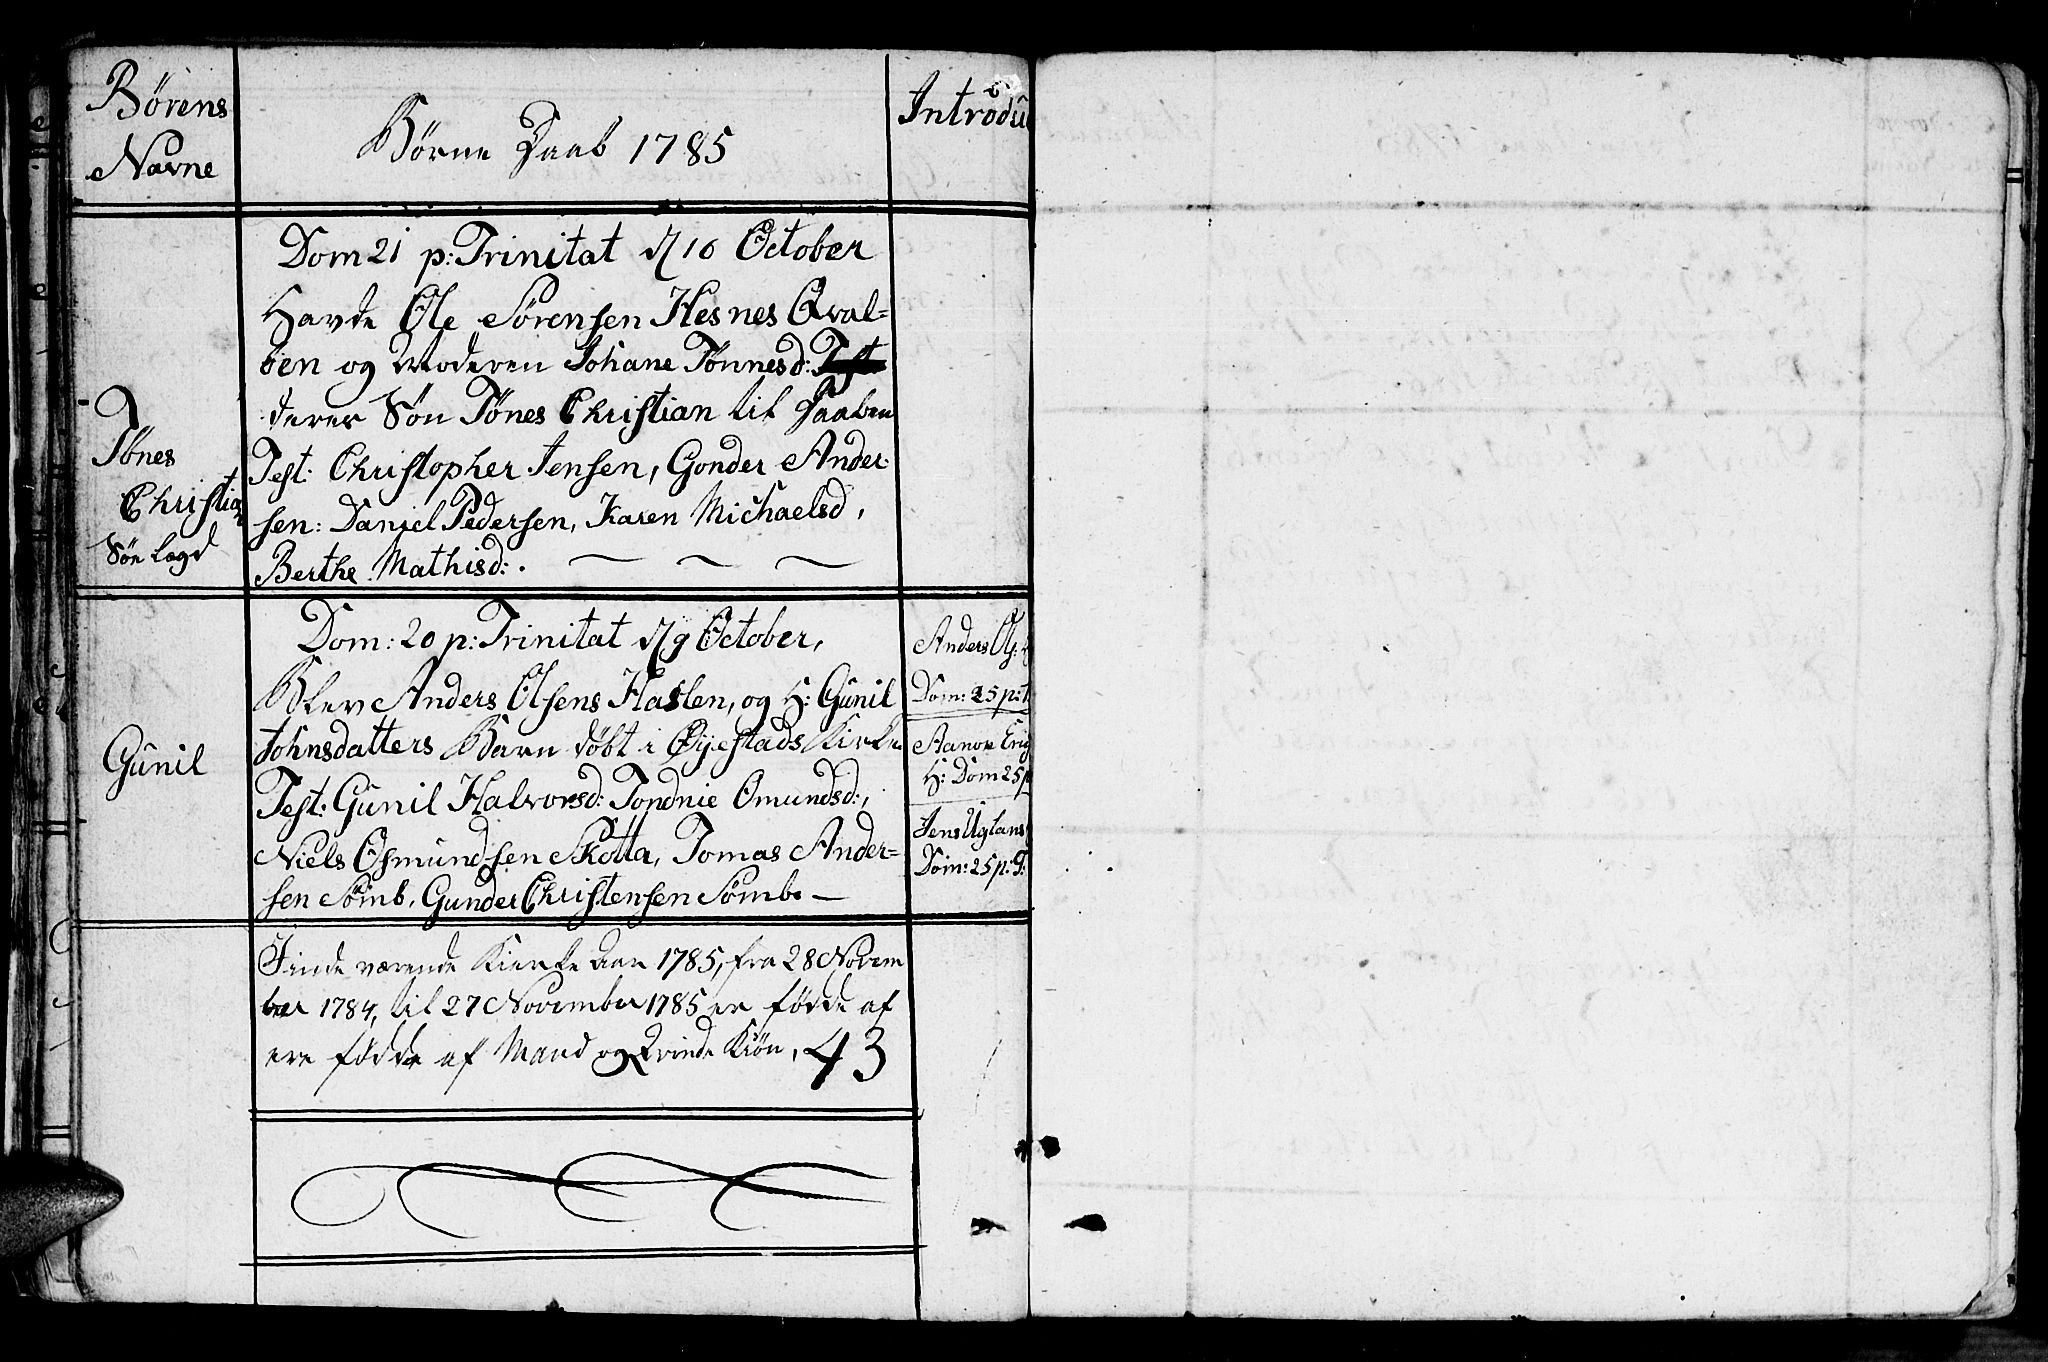 Børens
Navne
Børne Daab 1785
Introdu
Dom 21 p: Trinitat d 16 October
Havde Ole Sørensen Hesnes Qval-
öen og Moderen Johane Tönnesd: Test
deres Søn Tönes Christian til Daaben
Test: Christopher Jensen, Gonder Ander-
sen: Daniel Pedersen, Karen Michaelsd,
Berthe Mathisd:.
Tönes
Christian
Søn lægd
Dom: 20 p: Trinitat d 9 October,
Blev Anders Olsens Haslen, og H: Gunil
Johnsdatters Barn döbt i Øyestads Kirke
Test: Gunil Halvorsd: Tondnie Omundsd:,
Niels Osmundsen Skotta, Tomas Ander-
sen Sömb, Gunder Christensen Sömb.
Gunil
Anders Ols:
Dom: 25 p: T
Aanon Erig
H: Dom 25 p
Jens Uglans
Dom: 25 p: T:
Jinde værende Kirke Aar 1785, fra 28 Novem
ber 1784, til 27 November 1785 er födde af
ere födde af Mand og Qvinde Kiön, 43